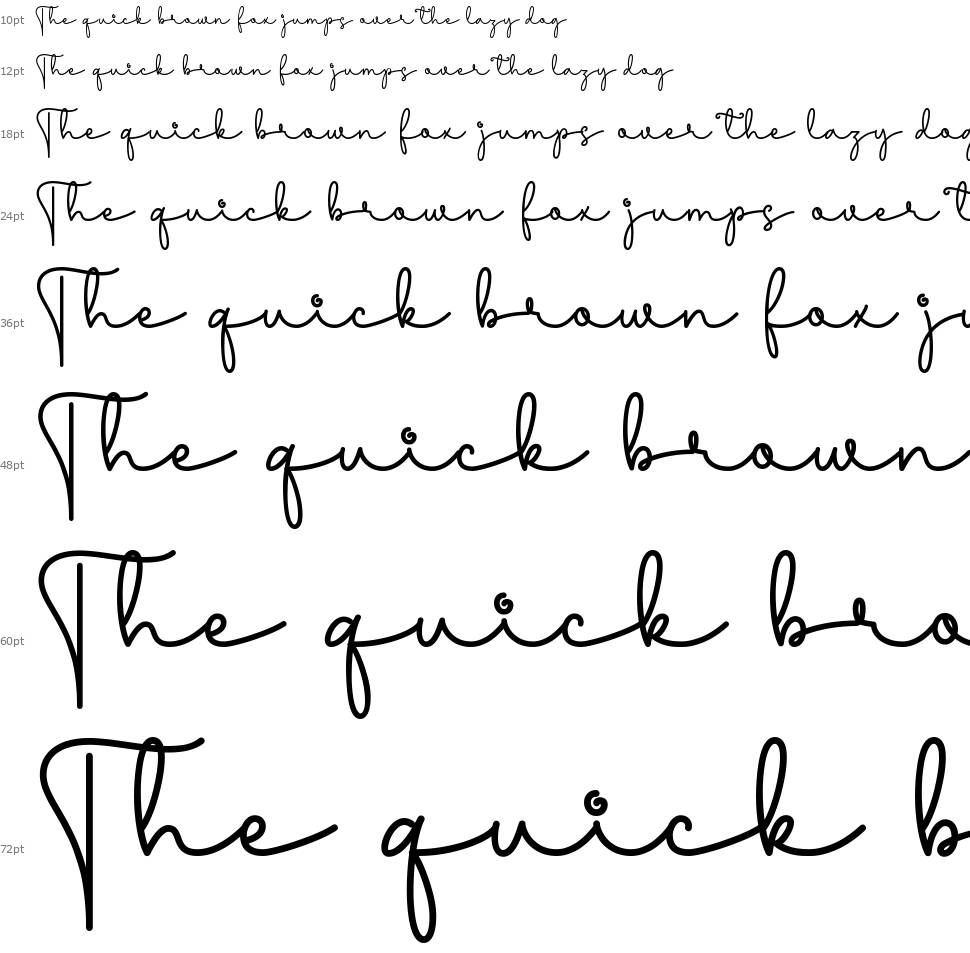 10pt The quick brown fox jumps over the lazy dog
12pt The quick brown fox jumps over the lazy dog
18pt The quick brown fox jumps over the lazy dog
24pt The quick brown fox jumps over t
36pt The quick brown fox ju
48pt The quick brown
60pt The quick bro
72pt The quick b